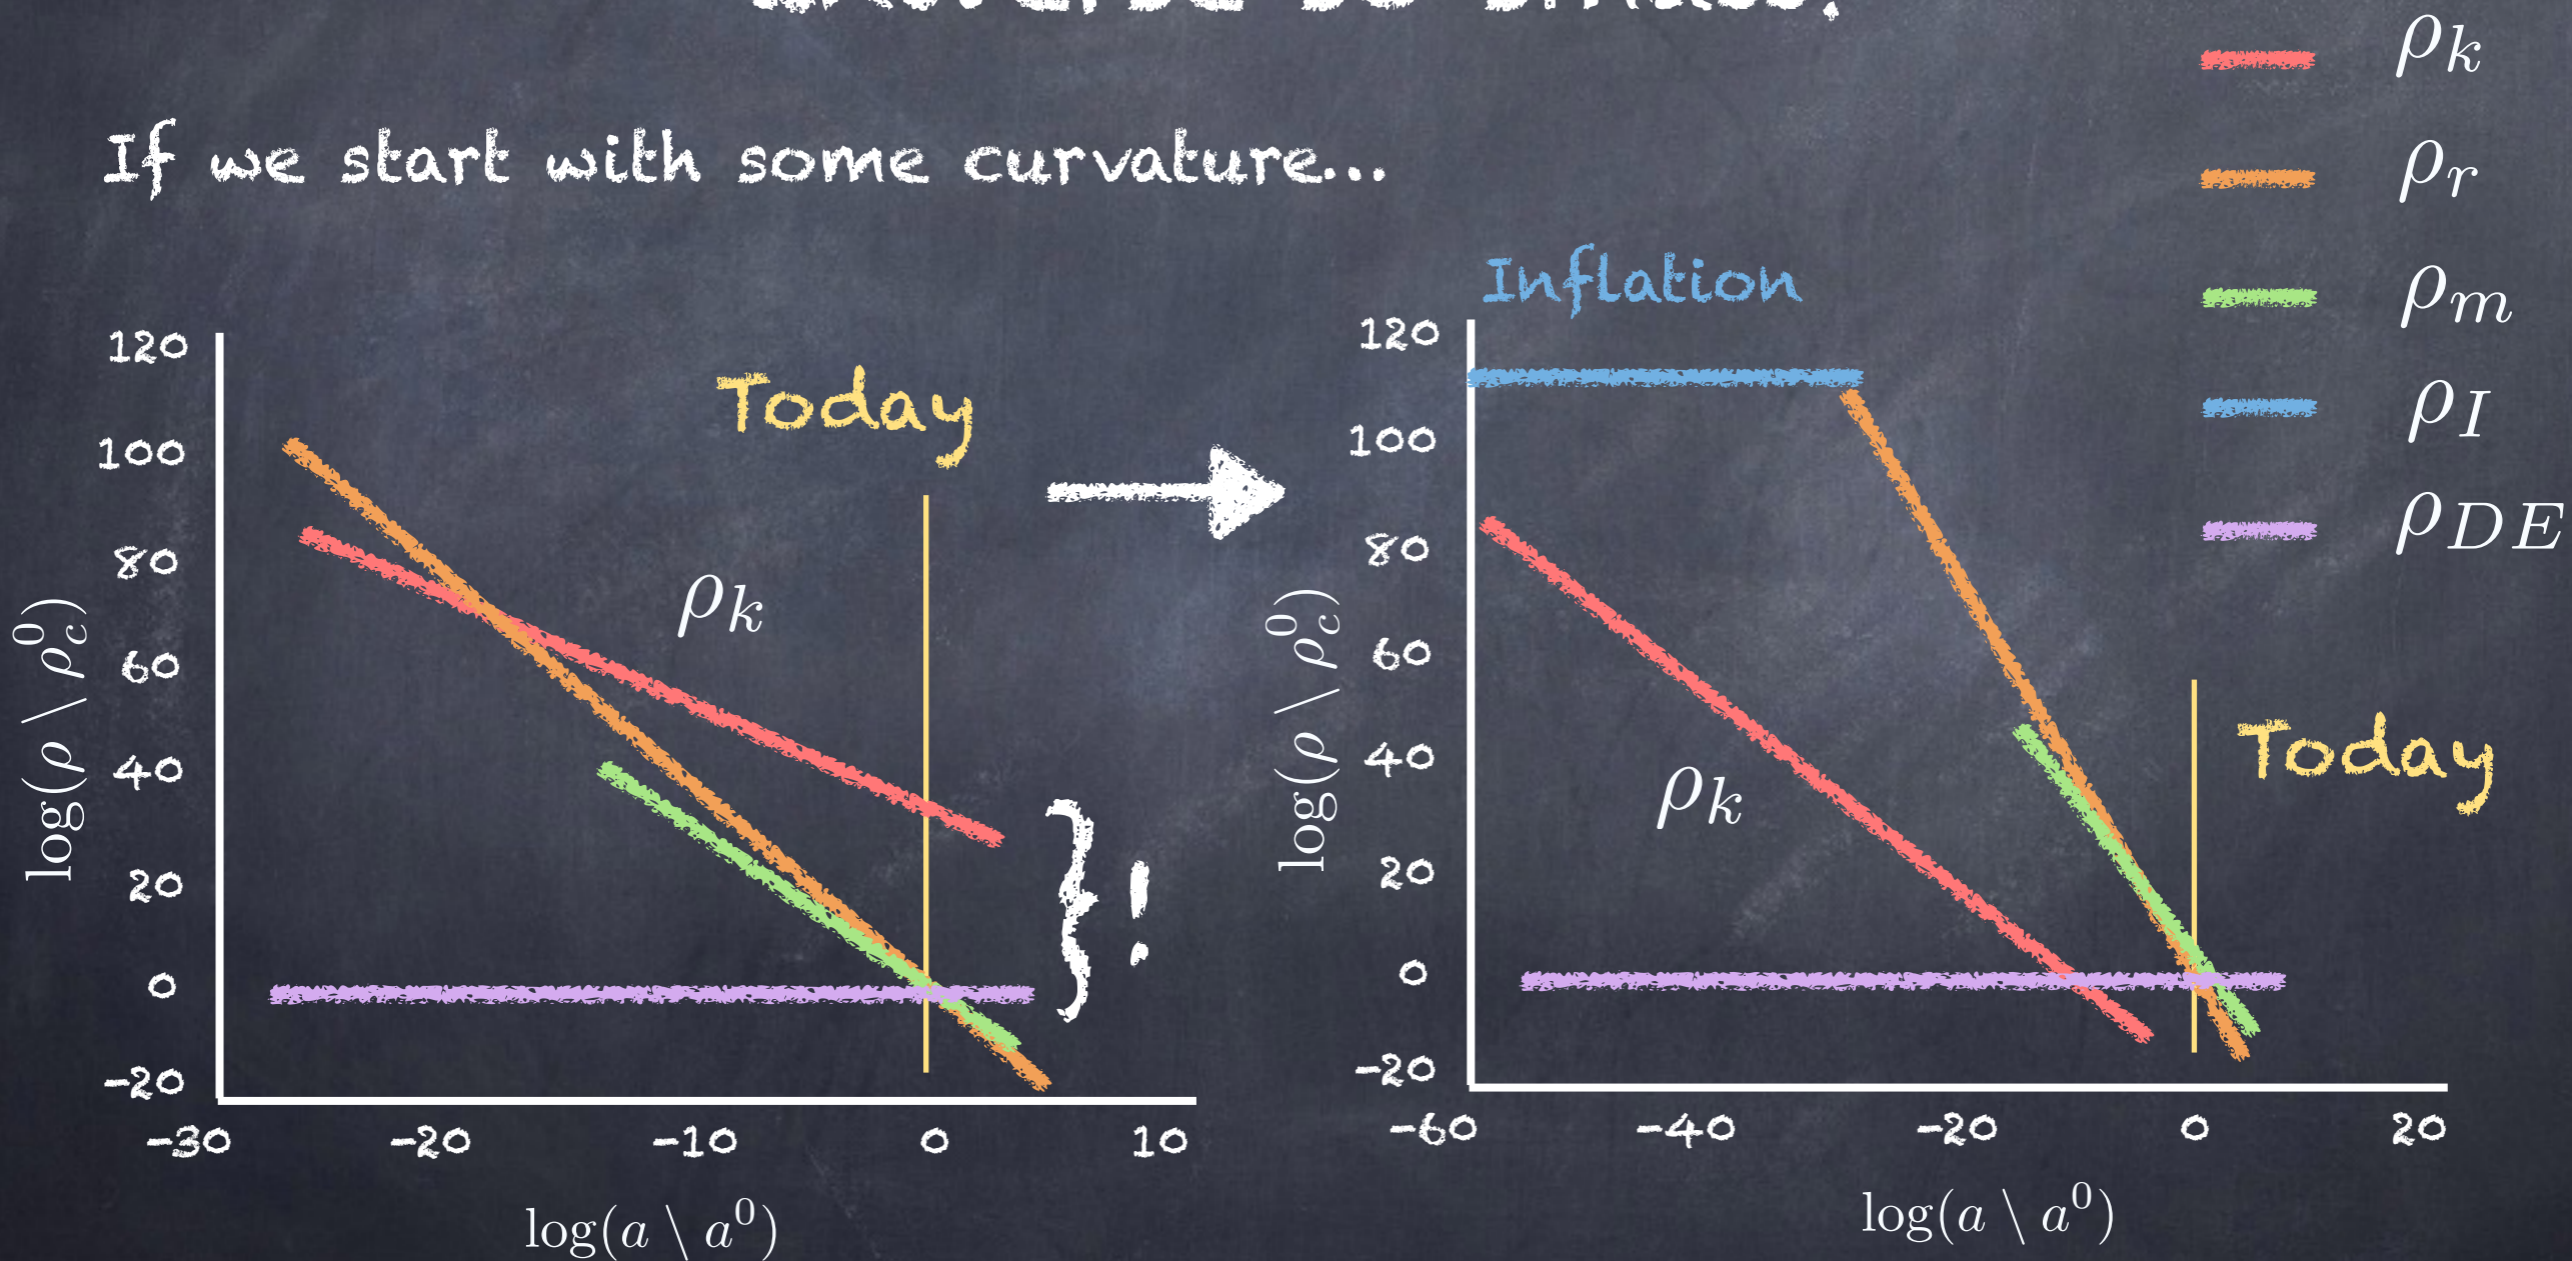 If we start with some curvature...
ρ_k
ρ_r
ρ_m
ρ_I
ρ_DE
120
100
80
60
40
20
0
-20
log(ρ \ ρ_c^0)
Today
ρ_k
}!
-30 -20 -10 0 10
log(a \ a^0)
Inflation
120
100
80
60
40
20
0
-20
log(ρ \ ρ_c^0)
ρ_k
Today
-60 -40 -20 0 20
log(a \ a^0)